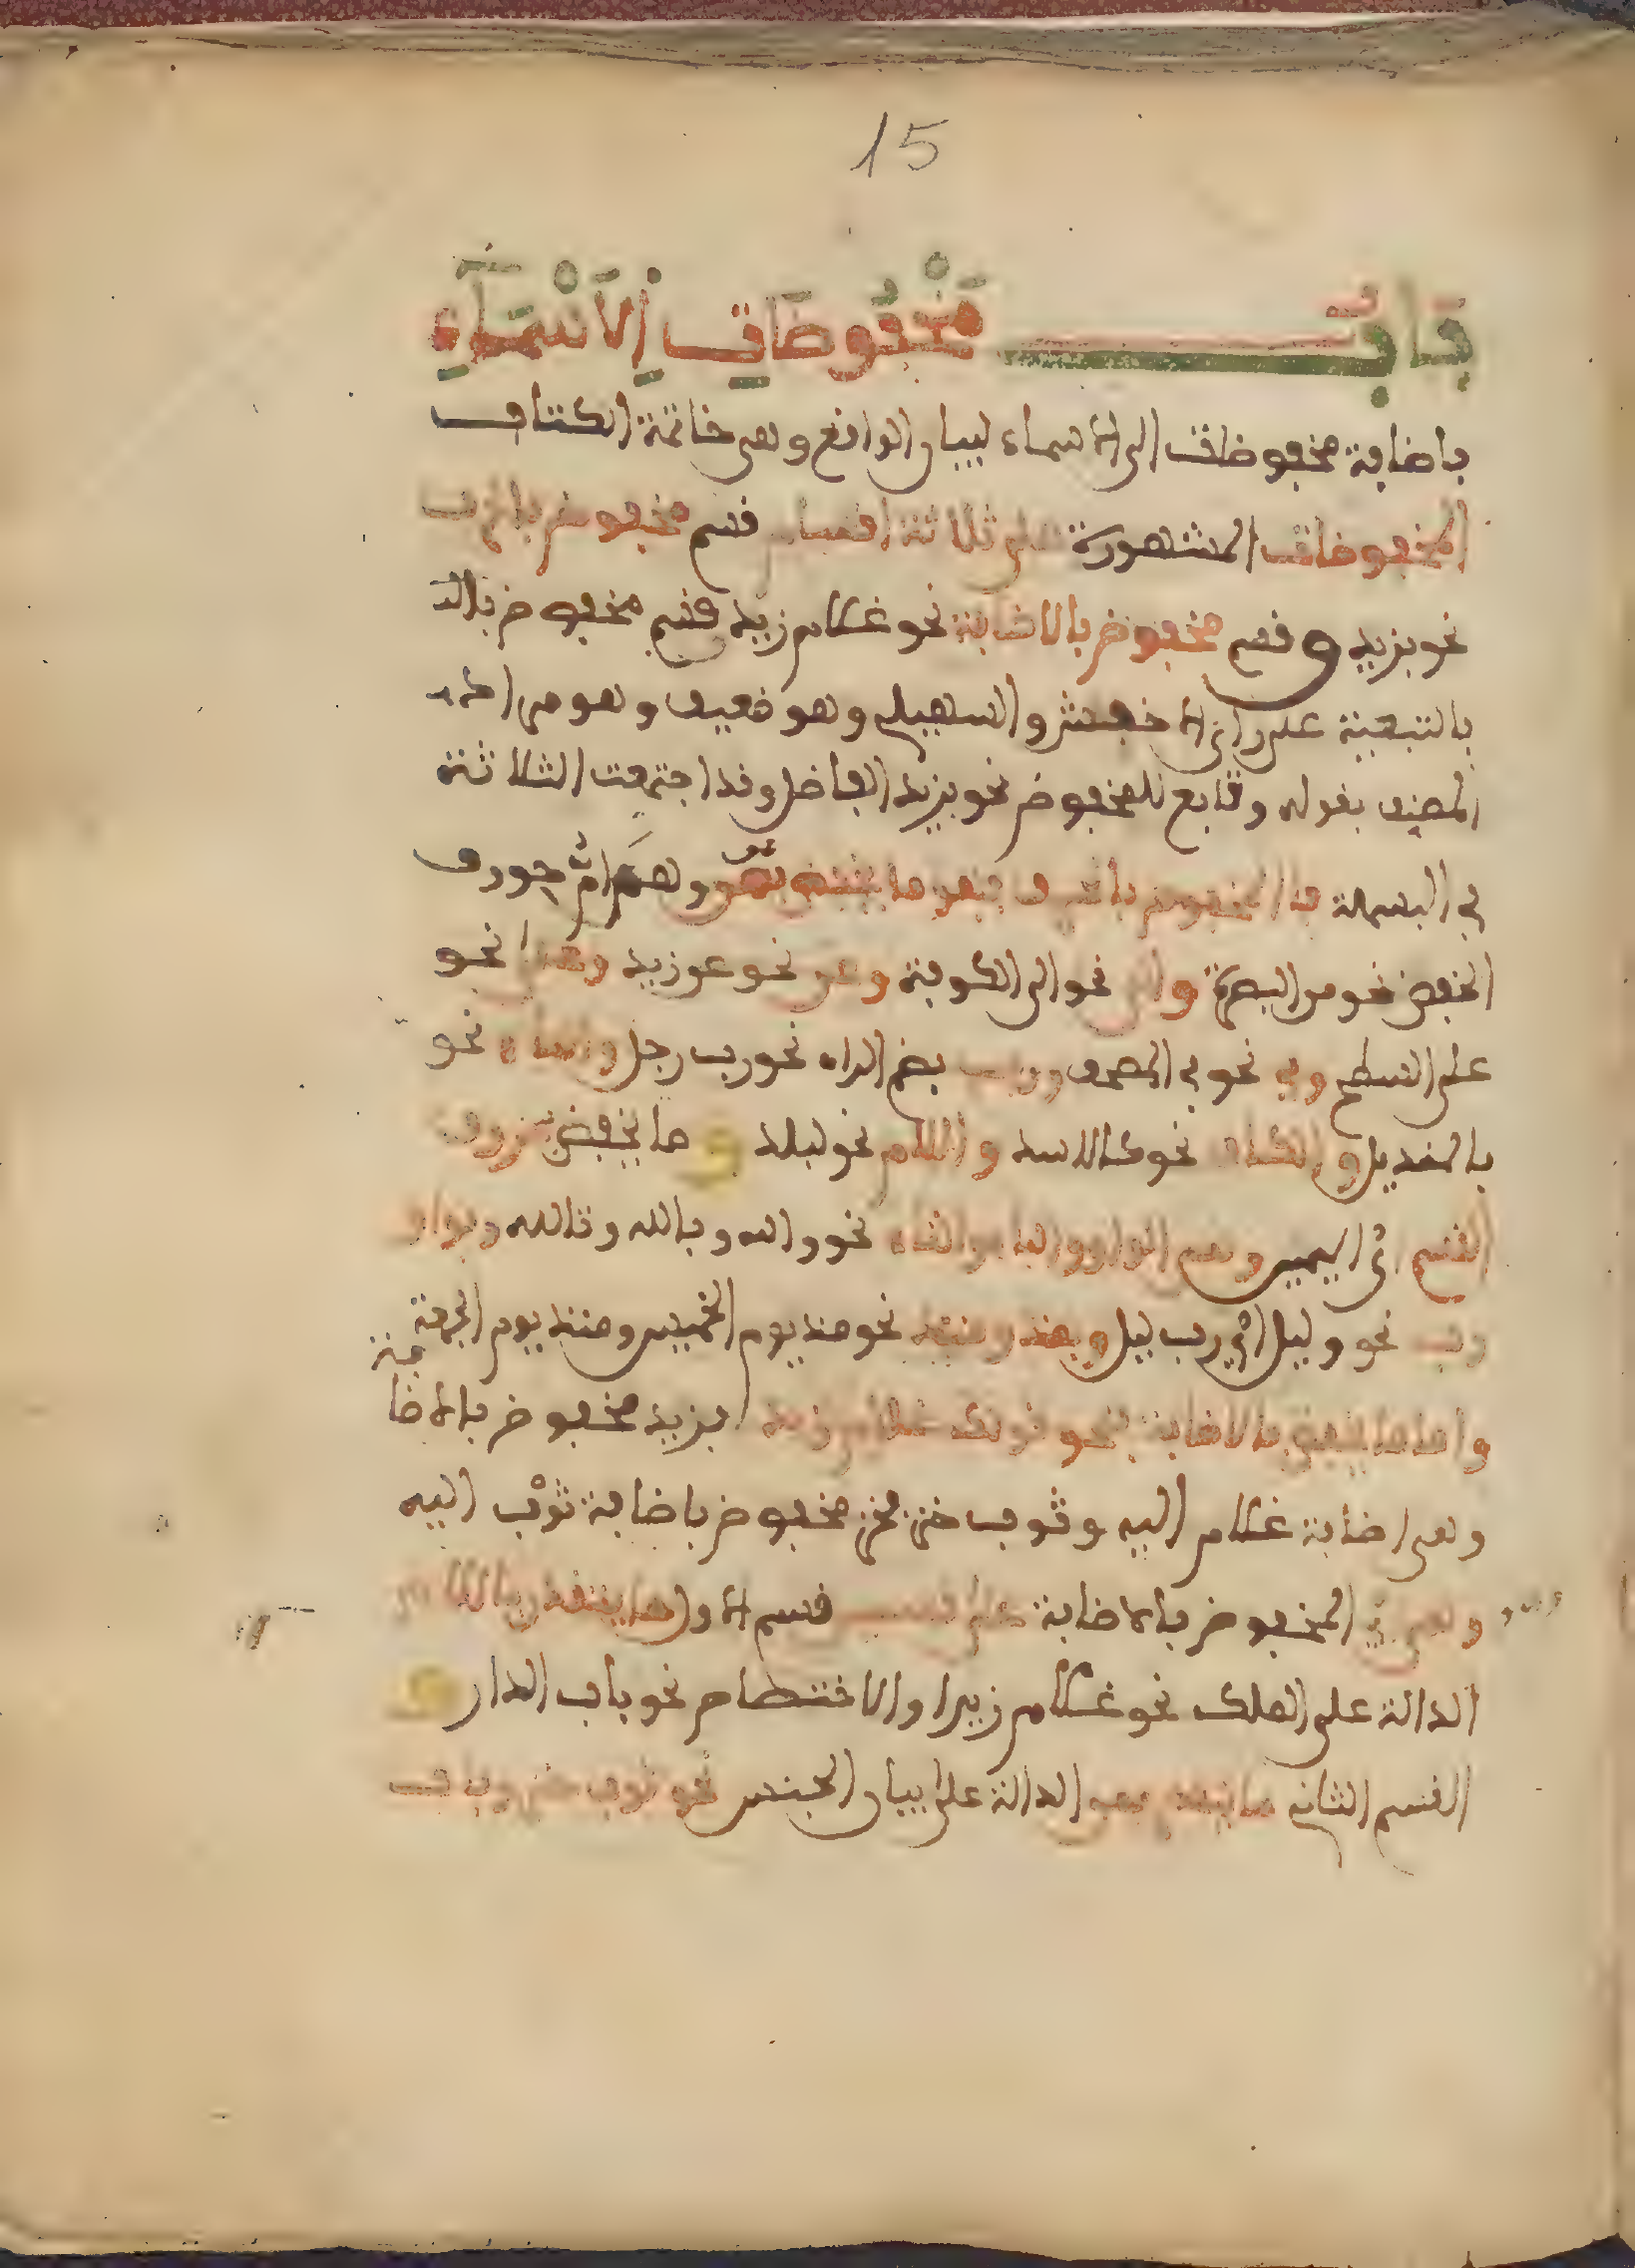 15
بَابُ مَخْفُوضَاتِ اِلاَسْمَآءِ
باضافة مخفوضات الى الاسماء لبيان الواقع وهى خاتمة الكتاب
المخفوضات المشهورة على ثلاثة اقسام قسم مخفوض بالحرف
نحو بزيد وقسم مخفوض بالاضافة نحو غلام زيد وقسم مخفوض
بالتبعية على راى الاخفش والسهيلى وهو ضعيف وهو مراد
المصنف بقوله وتابع للمخفوض نحو بزيد الفاضل وقد اجتمعت الثلاثة
فى البسملة فاما المخفوض بالحرف فهو ما يخفض بمن وهى ام حروف
الخفض نحو من البصرة والى نحو الى الكوفة وعن نحو عن زيد وعلى نحو
على السطح وفى نحو فى المصحف ورب بضم الراء نحو رب رجل والباء نحو
بالمنديل والكاف نحو كالاسد واللام نحو لبلد و ما يخفض بحروف
القسم اى اليمين وهى الواو والباء والتاء نحو والله وبالله وتالله وبواو
رب نحو وليل اى رب ليل وبمذ ومنذ نحو مذ يوم الخميس ومنذ يوم الجمعة
واما ما يخفض بالاضافة فنحو قولك غلام زيد بزيد مخفوض بالاضا
فة
وهى اضافة غلام اليه وثوب خز فخز مخفوض باضافة ثوب اليه
وهى اى المخفوض بالاضافة على قسمين قسم الاول ما يقدر باللام
الدالة على الملك نحو غلام زيد او الاختصاص نحو باب الدار و
القسم الثانى ما يقدر بمن الدالة على بيان الجنس نحو ثوب خز وباب